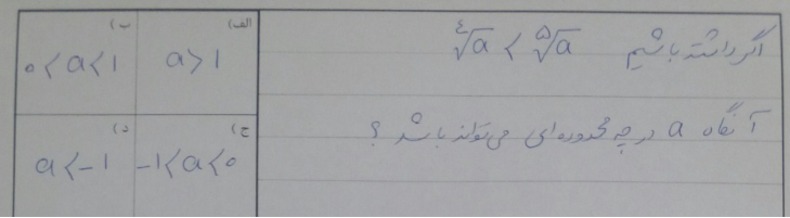 اگر داشته باشیم ⁴√a < ⁵√a
آنگاه a در چه محدوده‌ای می‌تواند باشد ؟
الف) a > 1
ب) 0 < a < 1
ج) -1 < a < 0
د) a < -1